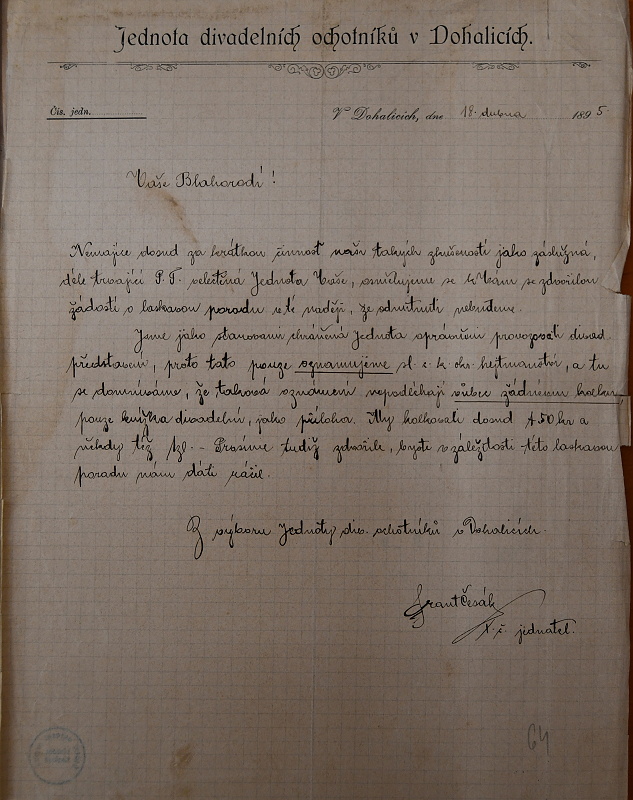 Jednota divadelních ochotníků v Dohalicích.
Čís. jedn.
V Dohalicích, dne 18. dubna 1895.
Vaše Blahorodí!
Nemajíce dosud za krátkou činnost naši takých zkušeností jako záslužná,
déle trvající P. T. velectěná Jednota Vaše, osmělujeme se k Vám se zdvořilou
žádostí o laskavou poradu v té naději, že odmítnuti nebudeme.
Jsme jako stanovami chráněná Jednota oprávněni provozovati divad.
představení, proto tato pouze oznamujeme sl. c. k. okr. hejtmanství, a tu
se domníváme, že taková oznámení nepodléhají vůbec žádnému kolku,
pouze knížka divadelní, jako příloha. My kolkovali dosud 50 kr a
někdy též 1 zl. - Prosíme tudíž zdvořile, byste v záležitosti této laskavou
poradu nám dáti ráčil.
Z výboru Jednoty div. ochotníků v Dohalicích.
Frant Česák
t. č. jednatel.
64